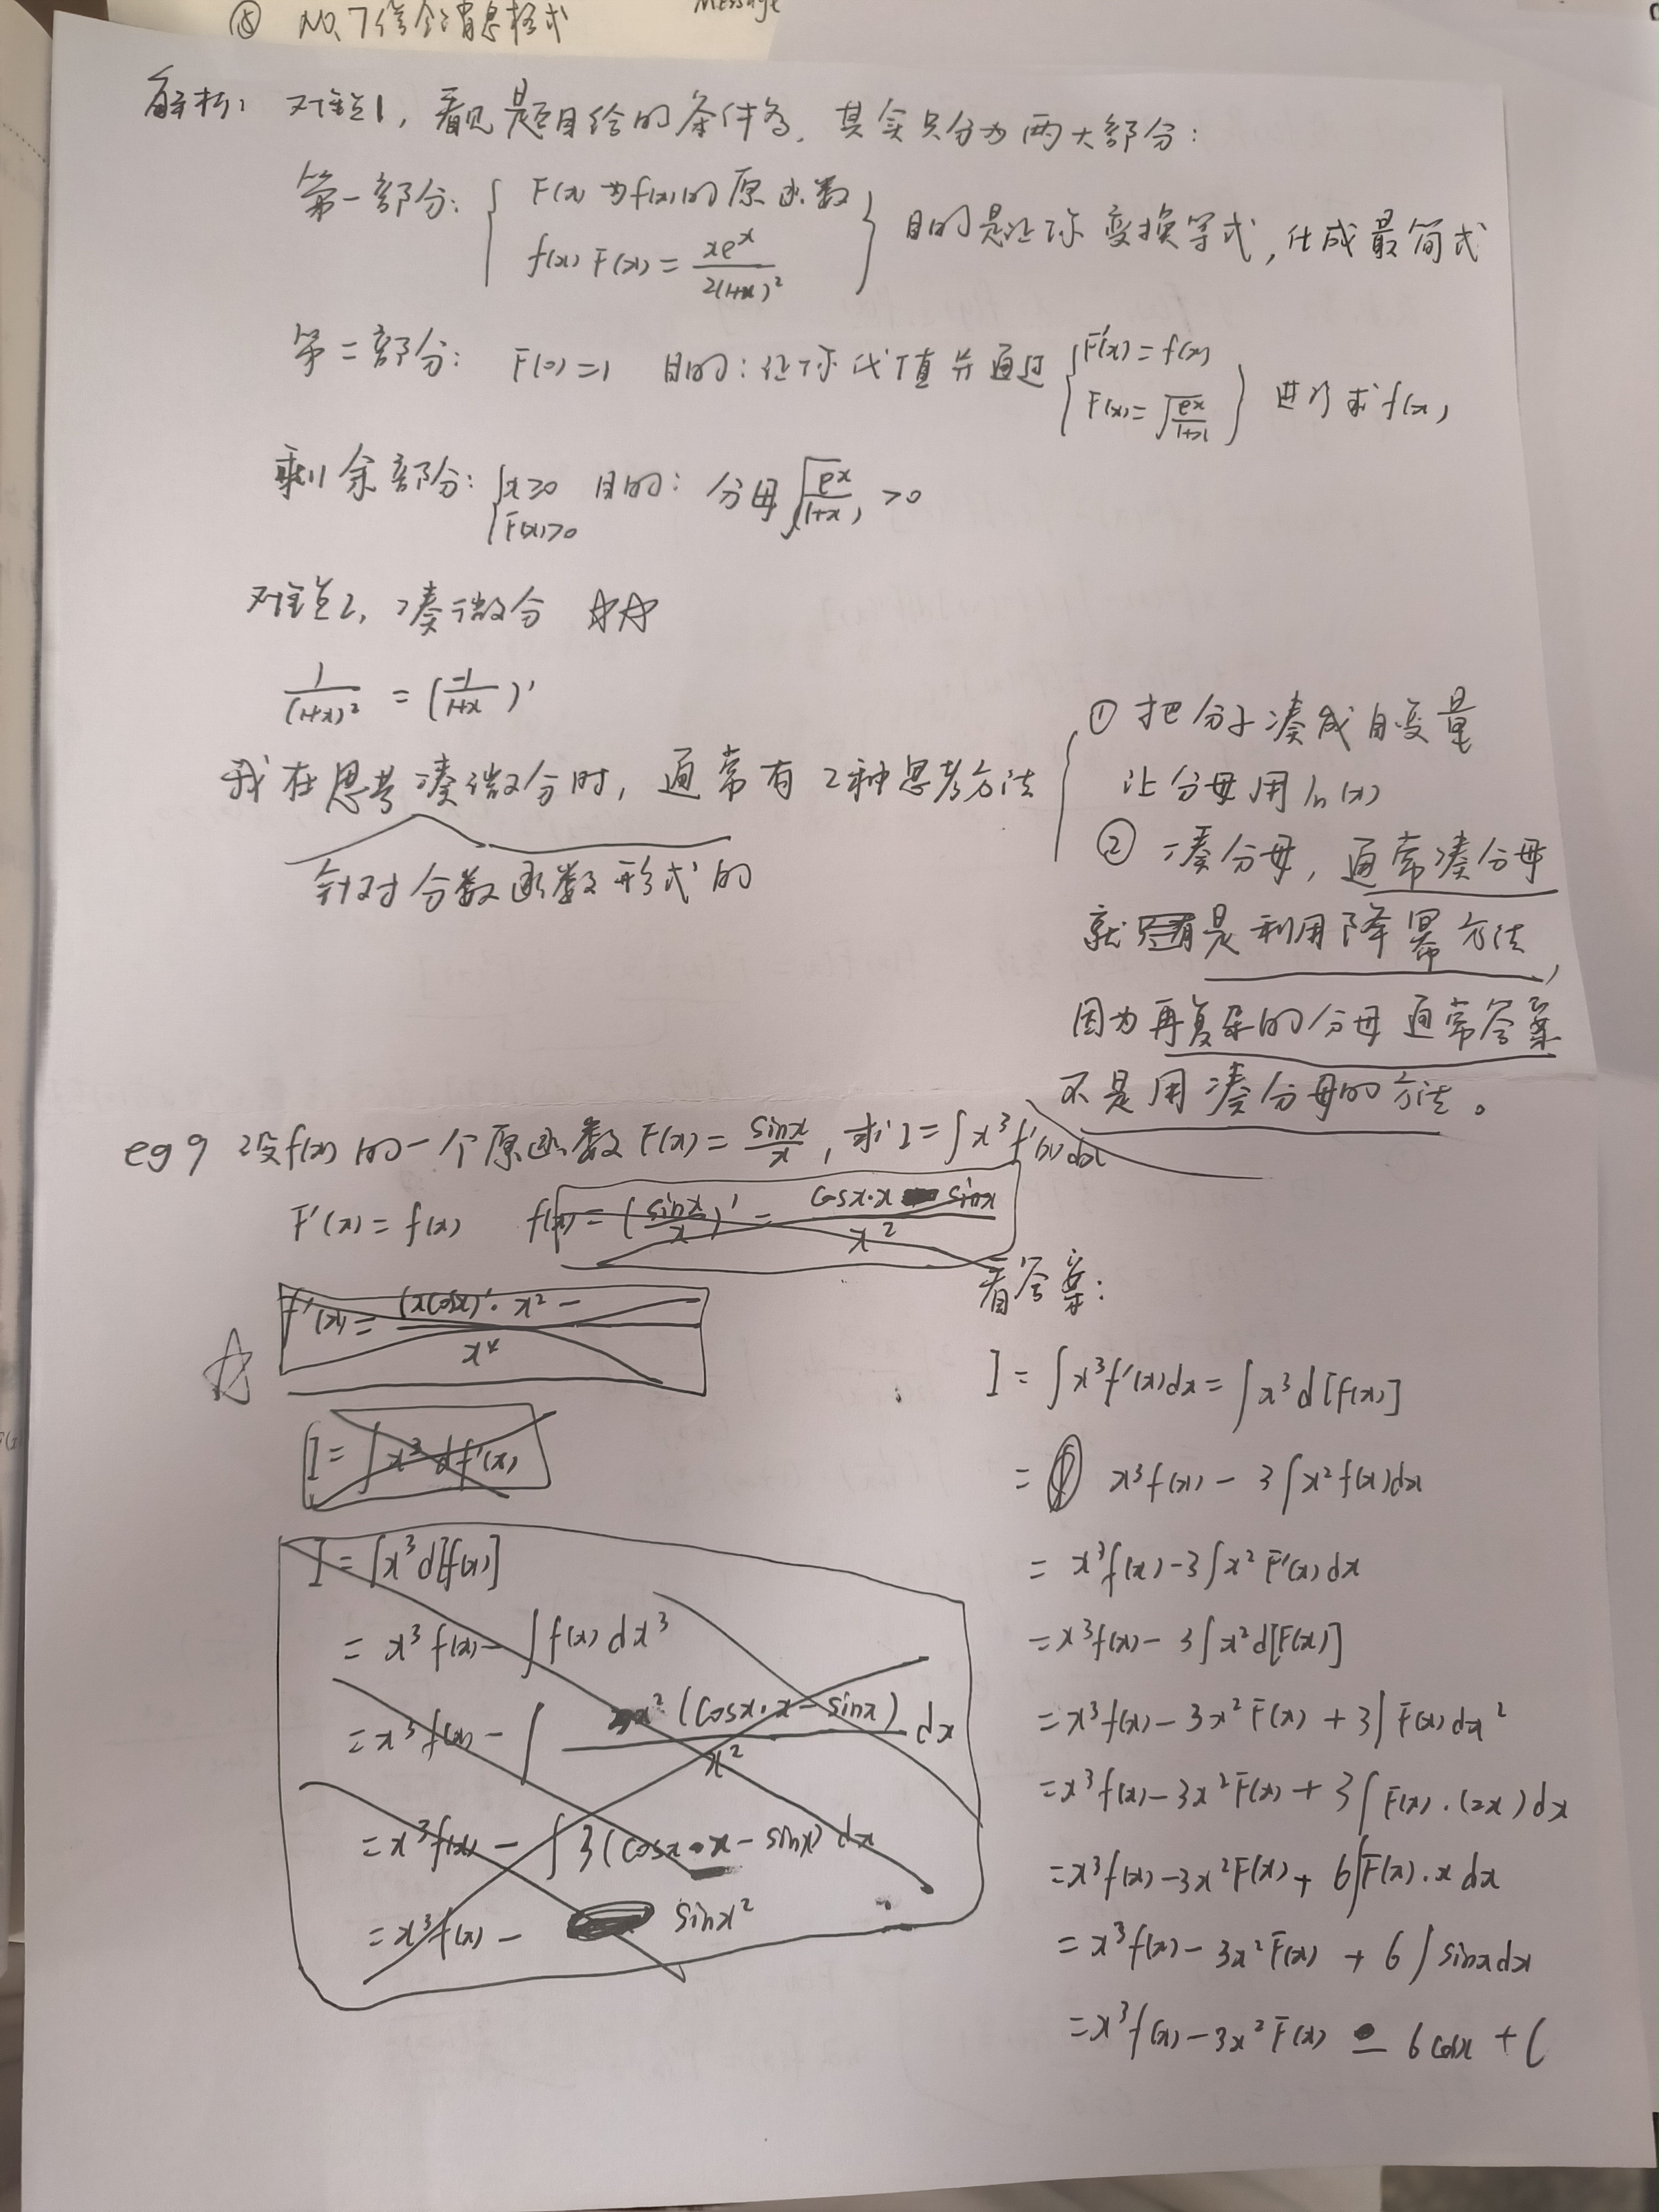 ⑤ NO.7信令消息格式
Message
解析: 对难点1, 看见是题目给的条件多, 其实只分为两大部分:
第一部分: { F(x)为f(x)的原函数
f(x)F(x) = xe^x / 2(1+x)² } 目的是让你变换等式, 化成最简式
第二部分: F(0)=1 目的: 让你代值并通过 { F'(x)=f(x)
F(x)=√(e^x/(1+x)) } 进行求f(x)
剩余部分: { x≥0
F(x)>0 目的: 分母 √(e^x/(1+x)) >0
对难点2, 凑微分 ☆☆
1/(1+x)² = (-1/(1+x))'
我在思考凑微分时, 通常有2种思考方法
针对分数函数形式的
① 把分子凑成自变量
让分母用ln(x)
② 凑分母, 通常凑分母
就是利用降幂方法,
因为再复杂的分母通常答案
不是用凑分母的方法。
eg 9 设f(x)的一个原函数F(x)= sinx/x, 求I=∫x³f'(x)dx
F'(x)=f(x) f(x)=(sinx/x)' = (cosx·x - sinx)/x²
f'(x)= ((xcosx)'·x² - )/x⁴
☆
I=∫x³df'(x)
I=∫x³d[f(x)]
= x³f(x) - ∫f(x)dx³
= x³f(x) - ∫ 3x²(cosx·x - sinx)/x² dx
= x³f(x) - ∫3(cosx·x - sinx)dx
= x³f(x) - sinx²
看答案:
I = ∫x³f'(x)dx = ∫x³d[f(x)]
= x³f(x) - 3∫x²f(x)dx
= x³f(x) - 3∫x²F'(x)dx
= x³f(x) - 3∫x²d[F(x)]
= x³f(x) - 3x²F(x) + 3∫F(x)dx²
= x³f(x) - 3x²F(x) + 3∫F(x)·(2x)dx
= x³f(x) - 3x²F(x) + 6∫F(x)·x dx
= x³f(x) - 3x²F(x) + 6∫sinxdx
= x³f(x) - 3x²F(x) - 6cosx + C